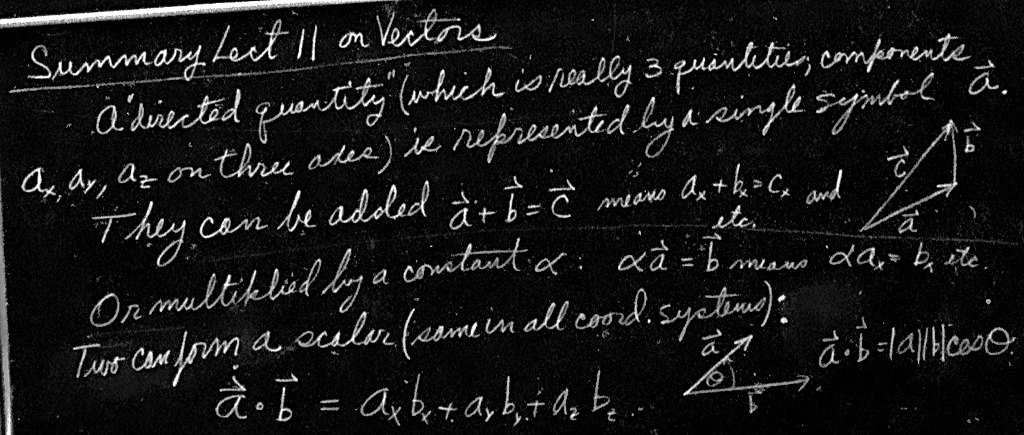 Summary Lect 11 on Vectors
A "directed quantity" (which is really 3 quantities, components
aₓ, aᵧ, a_z on three axes) is represented by a single symbol a⃗.
They can be added a⃗ + b⃗ = c⃗ means aₓ + bₓ = cₓ and
etc.
c⃗ b⃗
a⃗
Or multiplied by a constant α : αa⃗ = b⃗ means αaₓ = bₓ etc.
Two can form a scalar (same in all coord. systems):
a⃗ · b⃗ = aₓbₓ + aᵧbᵧ + a_z b_z
a⃗
θ
b⃗
a⃗ · b⃗ = |a||b|cosθ